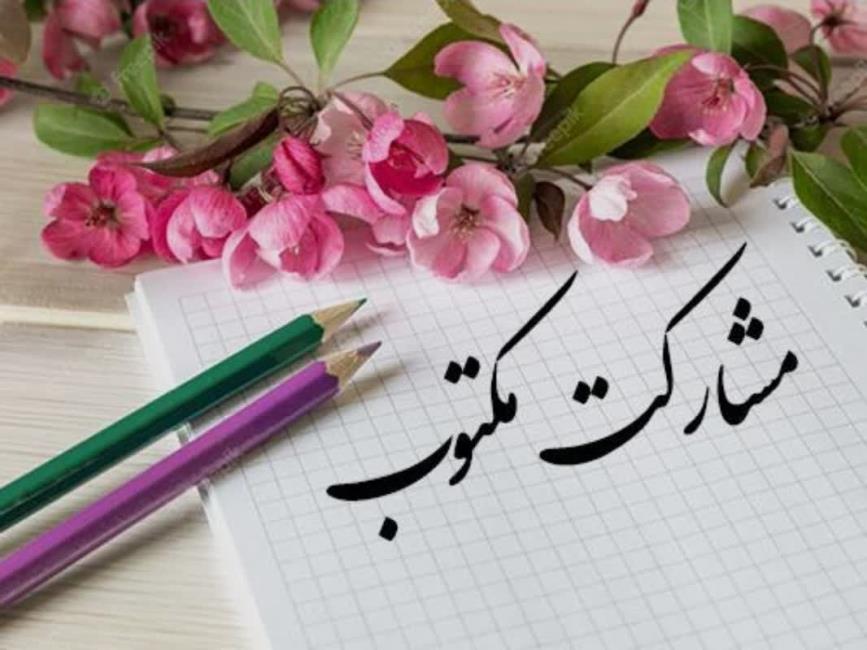 مشارکت مکتوب